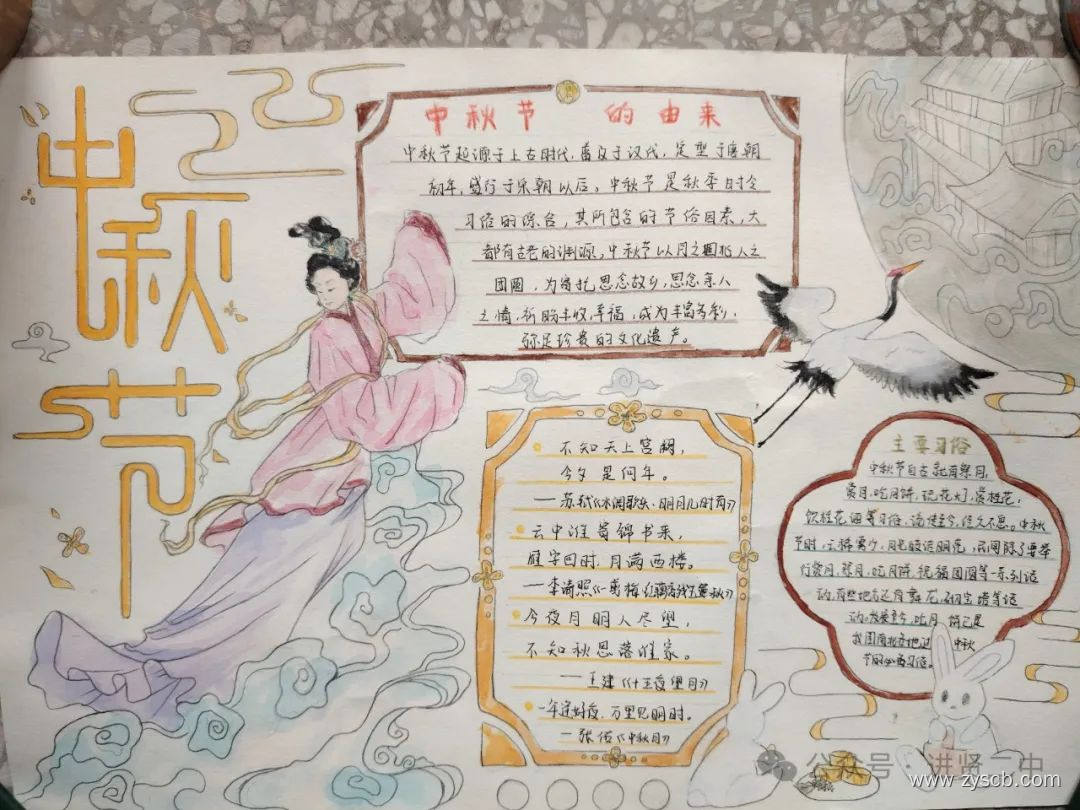 中秋节
中秋节 的由来
中秋节起源于上古时代,普及于汉代,定型于唐朝
初年,盛行于宋朝以后。中秋节是秋季时令
习俗的综合,其所包含的节俗因素,大
都有古老的渊源,中秋节以月之圆兆人之
团圆,为寄托思念故乡,思念亲人
之情,祈盼丰收、幸福,成为丰富多彩,
弥足珍贵的文化遗产。
不知天上宫阙,
今夕是何年。
——苏轼《水调歌头·明月几时有》
云中谁寄锦书来,
雁字回时,月满西楼。
——李清照《一剪梅·红藕香残玉簟秋》
今夜月明人尽望,
不知秋思落谁家。
——王建《十五夜望月》
一年逢好夜,万里见明时。
—张佑《中秋月》
主要习俗
中秋节自古就有祭月、
赏月、吃月饼、玩花灯、赏桂花、
饮桂花酒等习俗,流传至今,经久不息。中秋
节时,云稀雾少,月光皎洁明亮,民间除了要举
行赏月、祭月、吃月饼、祝福团圆等一系列活
动,有些地方还有舞 龙、砌宝塔等活
动,发展至今,吃月 饼已是
我国南北各地过 中秋
节的必备习俗。
公众号·进贤二中
www.zyscb.com